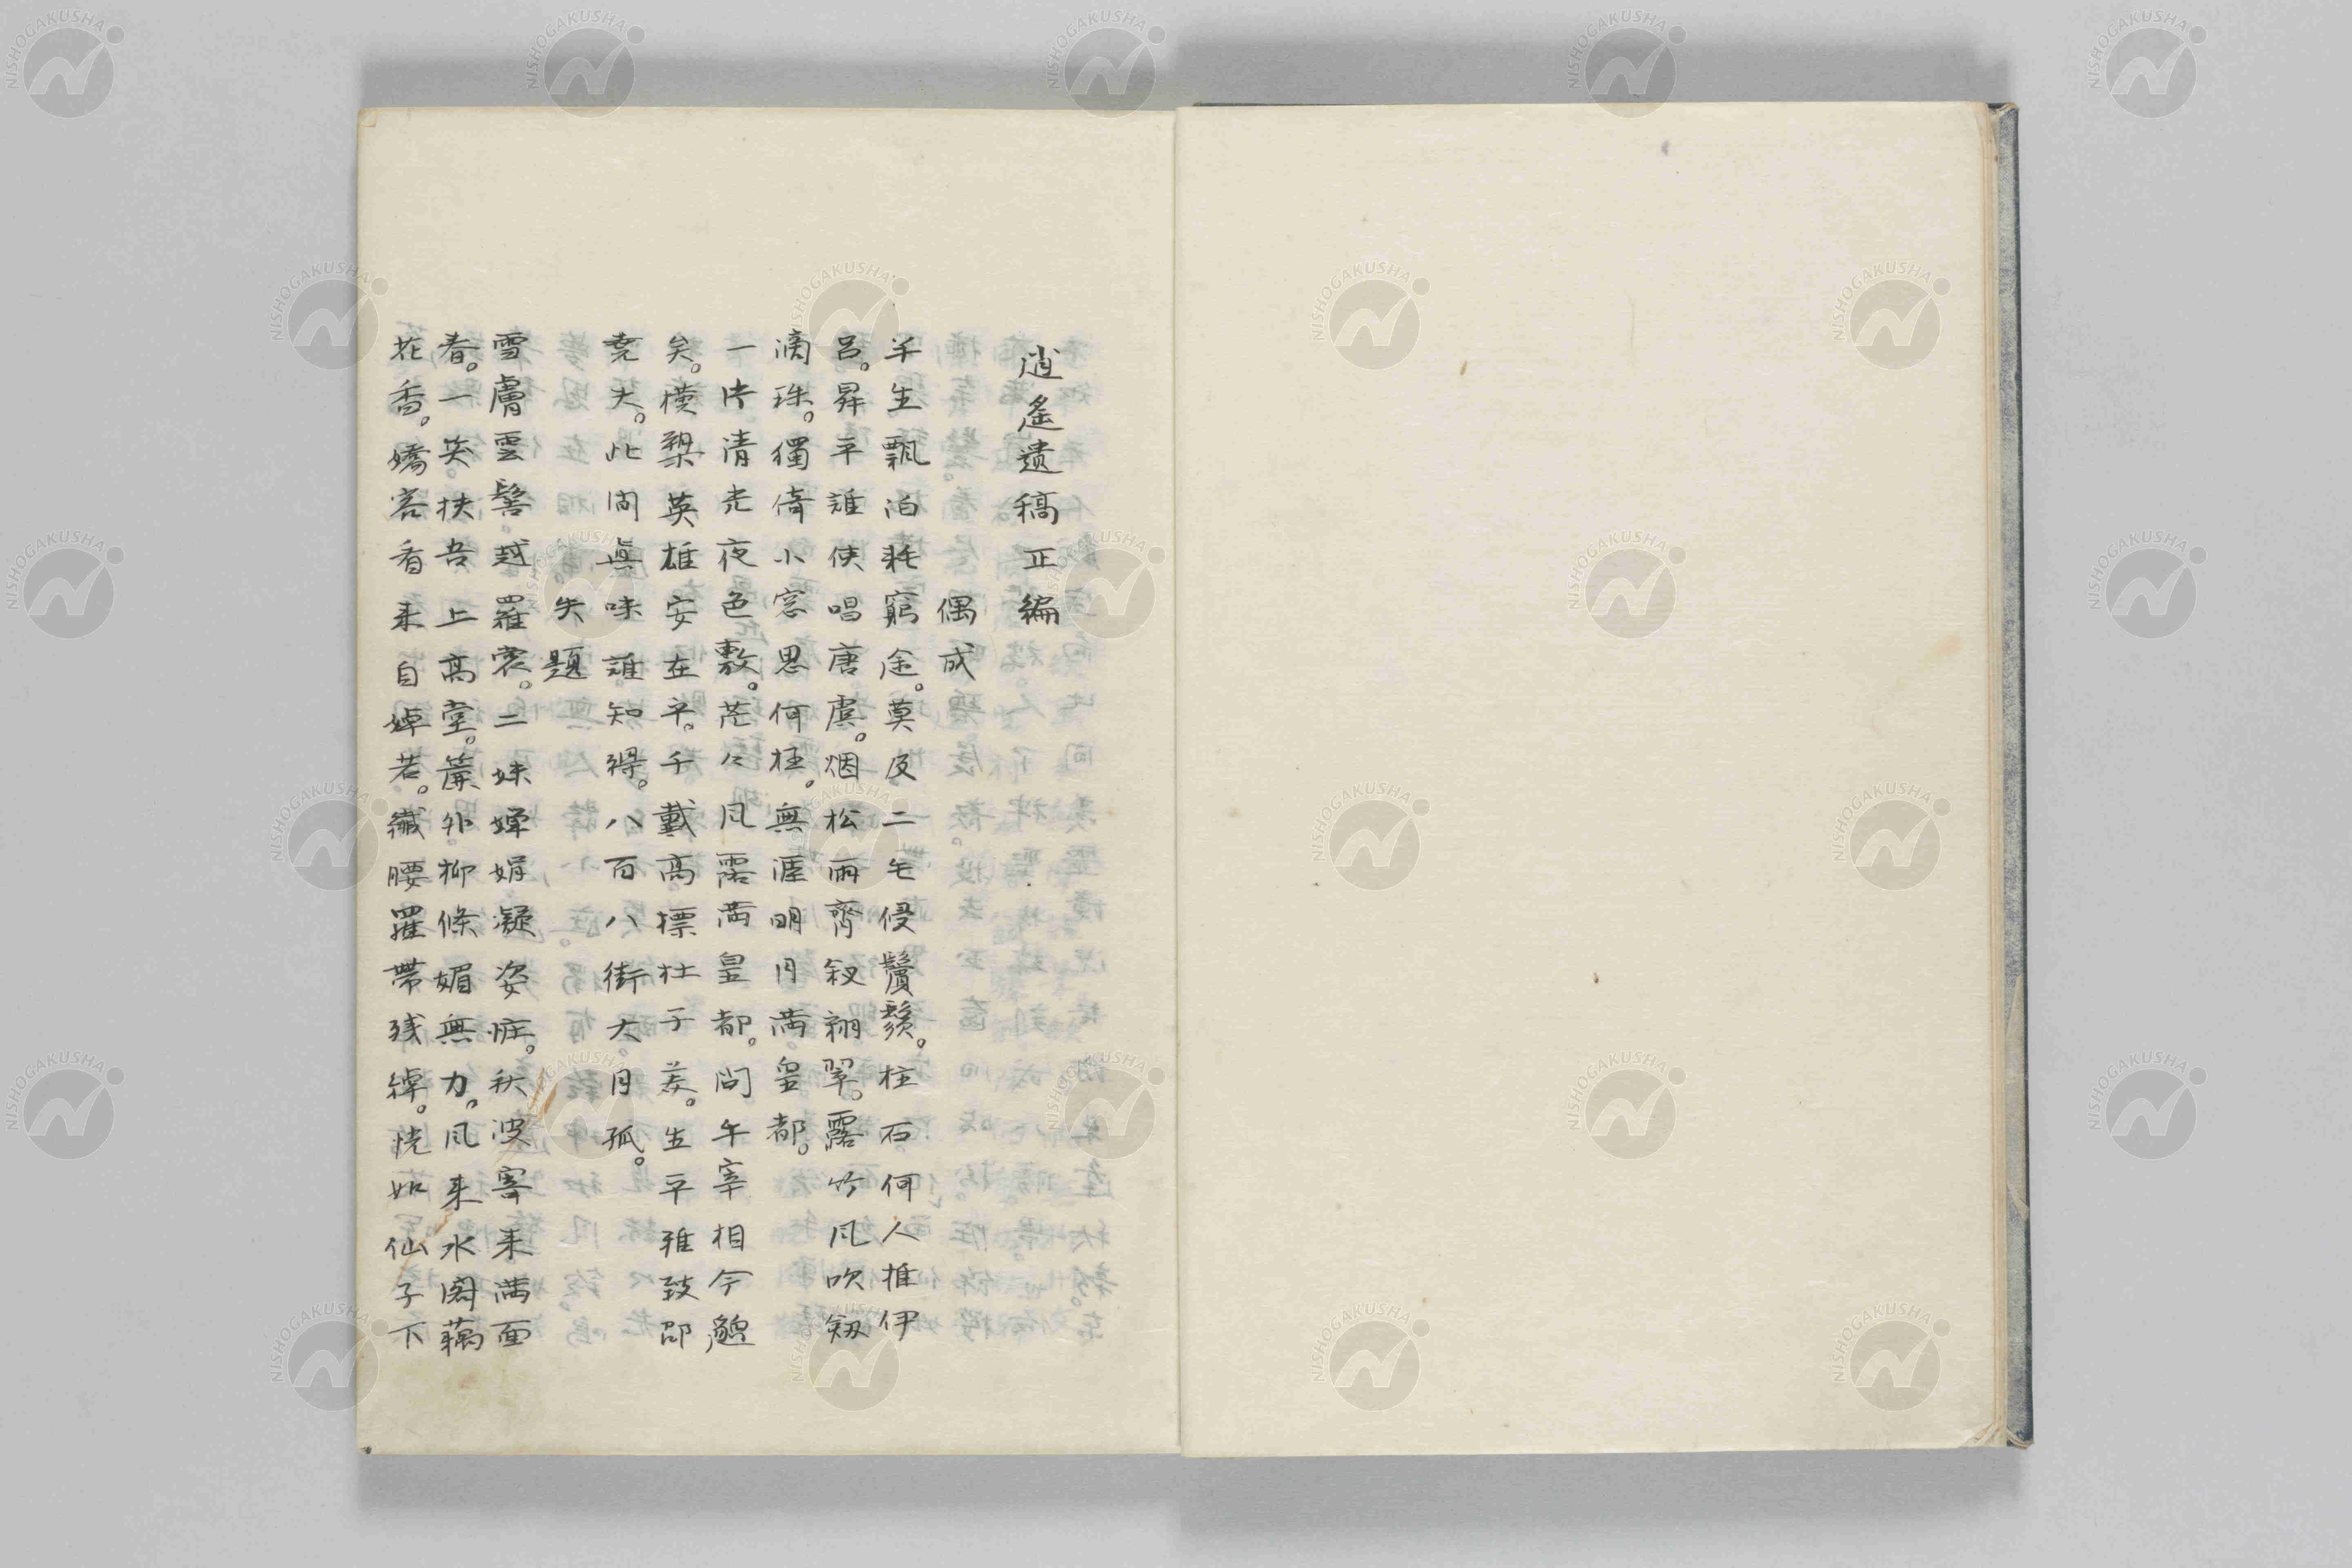 逍遙遺稿正編
偶成
半生飄泊耗窮途。莫及二毛侵鬢鬚。柱石何人推伊
呂。昇平誰使唱唐虞。烟松雨齊釵翎翠。露竹風吹釼
滴珠。獨倚小窓思何枉。無涯明月満皇都。
一片清光夜色敷。茫々風露満皇都。問午宰相今
矣。横槊英雄安在乎。千載高標杜子羨。生平雅致邵
堯夫。此間真味誰知得。八百八街大月孤。
失題
雪膚雲鬢越羅裳。二妹嬋娟凝姿粧。秋波寄来満面
春。一笑扶吾上高堂。簾外柳條媚無力。風来水閣藕
花香。嬌客看来自婥若。纎腰羅帶残綽。恍如仙子下
NISHOGAKUSHA